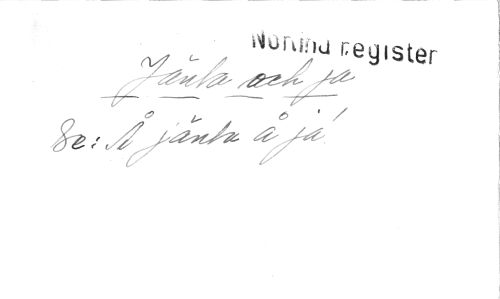 Norlind register
Jänta och ja
Se: Å jänta å ja'